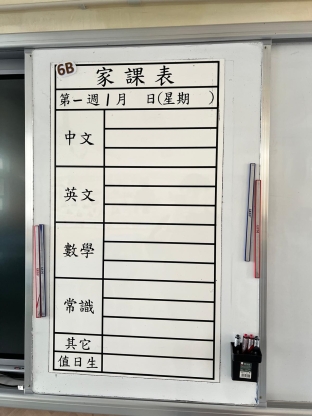 6B
家課表
第一週1月 日(星期 )
中文
英文
數學
常識
其它
值日生